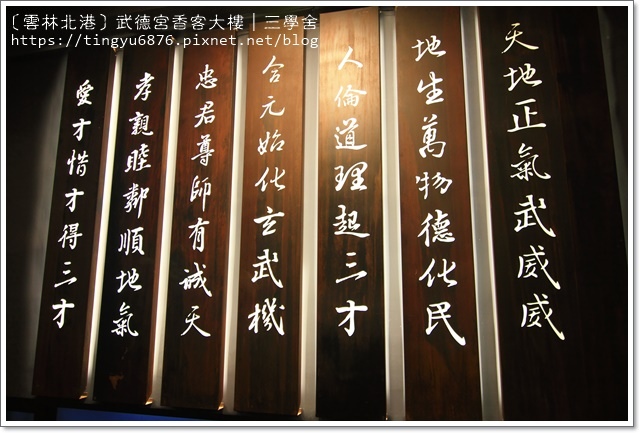 〔雲林北港〕武德宮香客大樓|三學舍
https://tingyu6876.pixnet.net/blog
天地正氣武威威
地生萬物德化民
人倫道理起三才
含元始化玄武機
忠君尊師有誠天
孝親睦鄰順地氣
愛才惜才得三才